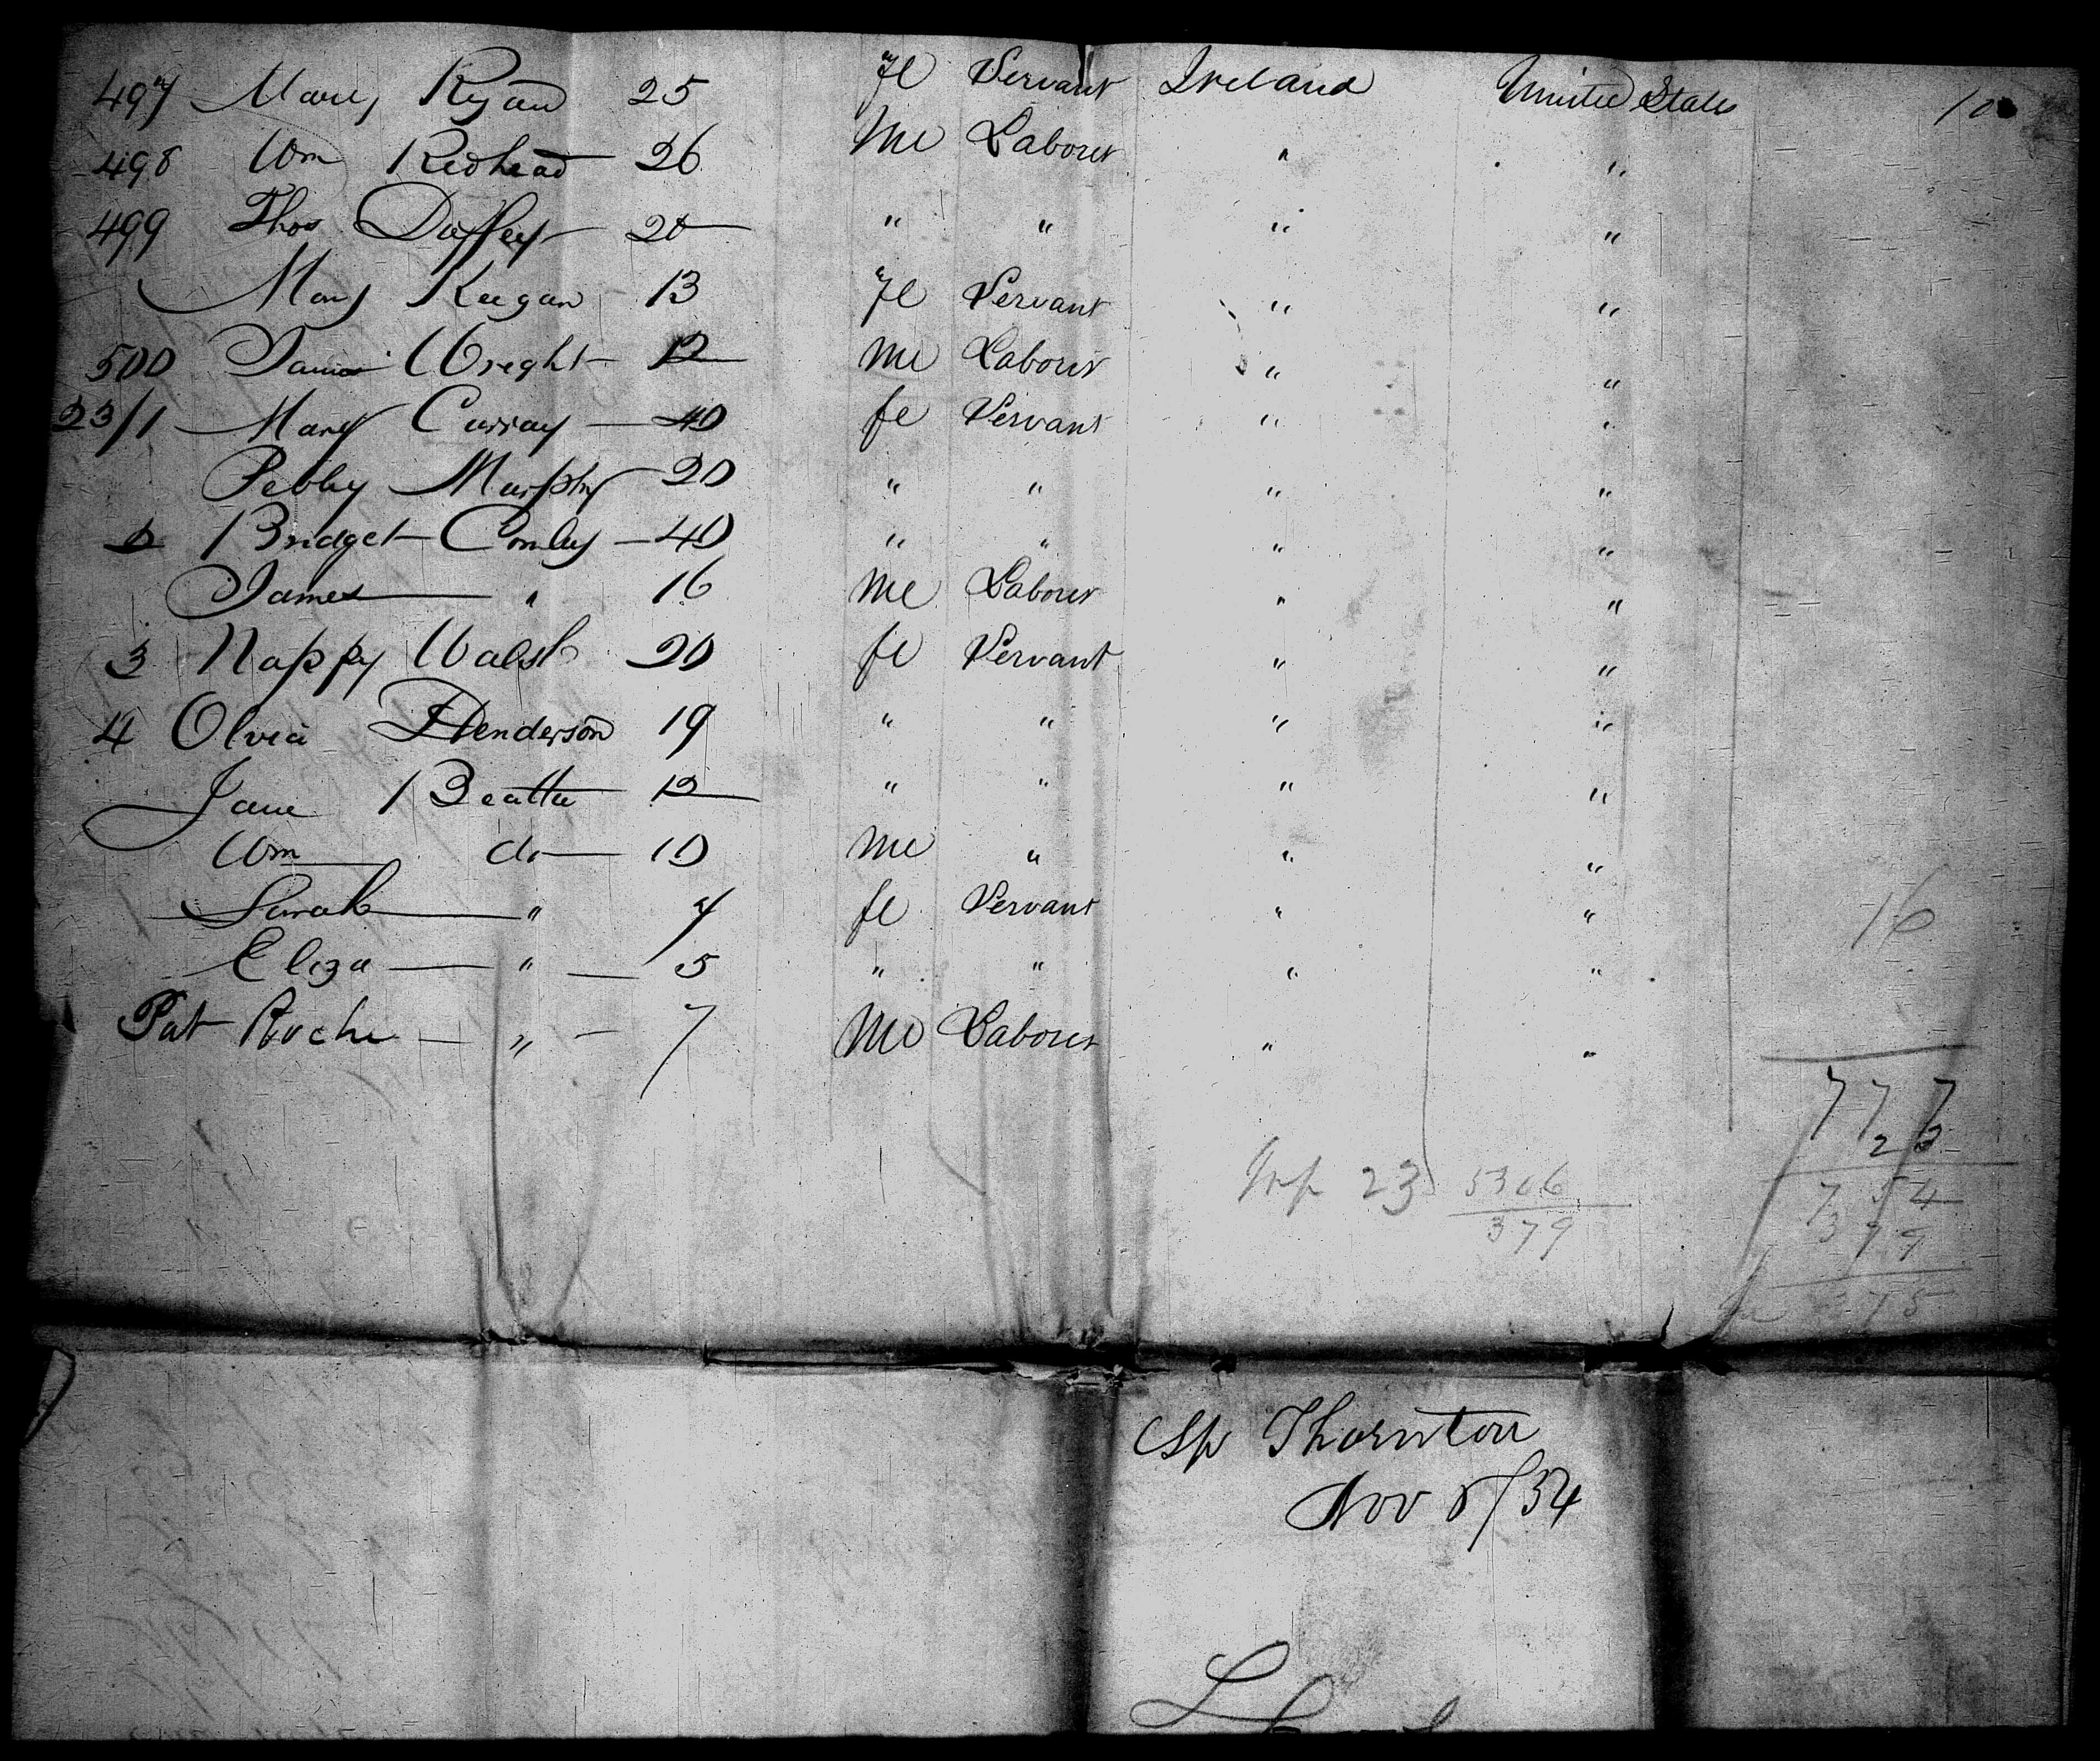 497 Mary Ryan 25 fe Servant Ireland United States 10
498 Wm Redhead 26 Me Laborer " "
499 Thos Daffey 20 " " " "
Mary Keegan 13 fe Servant " "
500 James Wright 12 Me Laborer " "
23/1 Mary Curray 40 fe Servant " "
Pebby Murphy 20 " " " "
2 Bridget Conley 40 " " " "
James " 16 Me Laborer " "
3 Nappy Walsh 20 fe Servant " "
4 Olvia Henderson 19 " " " "
Jane Beattie 12 " " " "
Wm do 10 Me " " "
Sarah " 7 fe Servant " " 16
Eliza " 5 " " " "
Pat Roche " 7 Me Laborer " "
777
23
Inf 23 5306 754
379 379
375
Sp Thornton
Nov 8/54